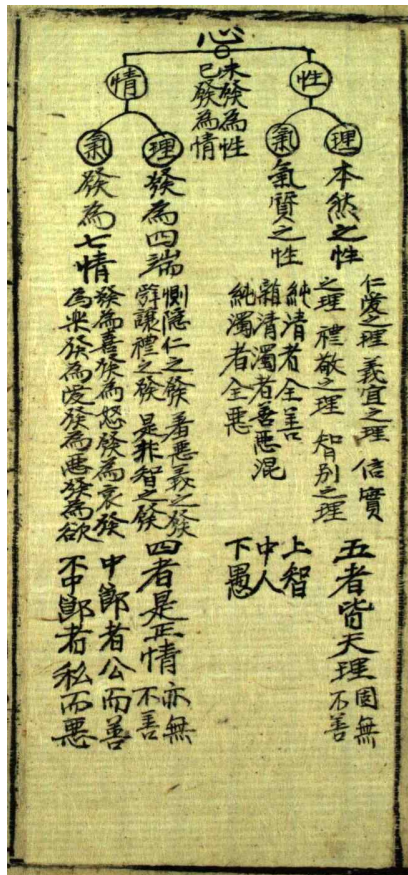 心
未發為性
已發為情
性
理
本然之性
仁愛之理 義宜之理 信實
之理 禮敬之理 智別之理
五者皆天理
固無
不善
氣
氣質之性
純清者全善
雜清濁者善惡混
純濁者全惡
上智
中人
下愚
情
理
發為四端
惻隱仁之發 羞惡義之發
辭讓禮之發 是非智之發
四者是正情
亦無
不善
氣
發為七情
發為喜發為怒發為哀發
為樂發為愛發為惡發為欲
中節者公而善
不中節者私而惡